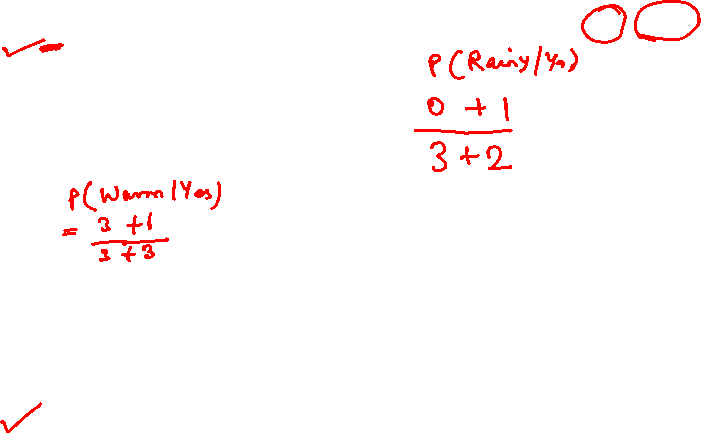 P(Rainy/Yes)
0 + 1
3 + 2
P(Warm/Yes)
= 3 + 1
3 + 3